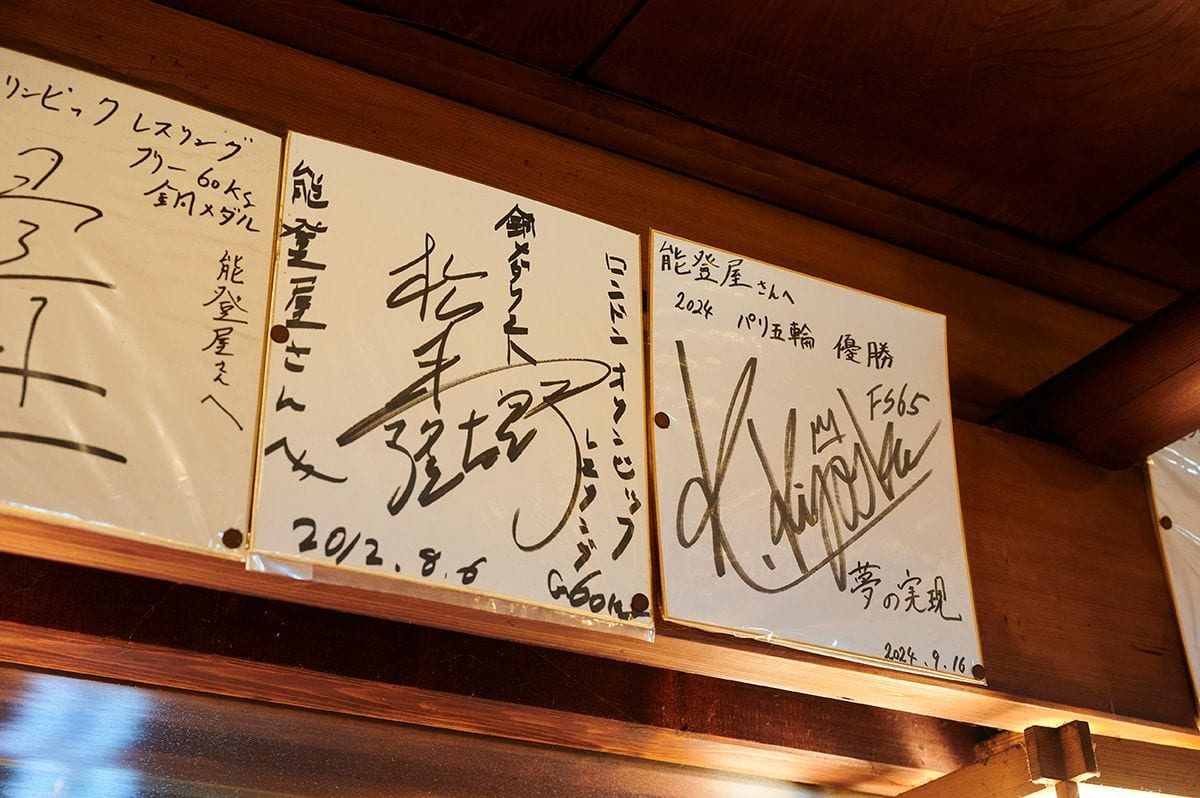 リンピック レスリング
フリー 60kg
銅メダル
能登屋さんへ
能登屋さんへ
松本隆太郎
銅メダリスト
ロンドンオリンピック
レスリング
G60kg
2012.8.6
能登屋さんへ
2024 パリ五輪 優勝
FS65
K.Kiyooka
夢の実現
2024.9.16